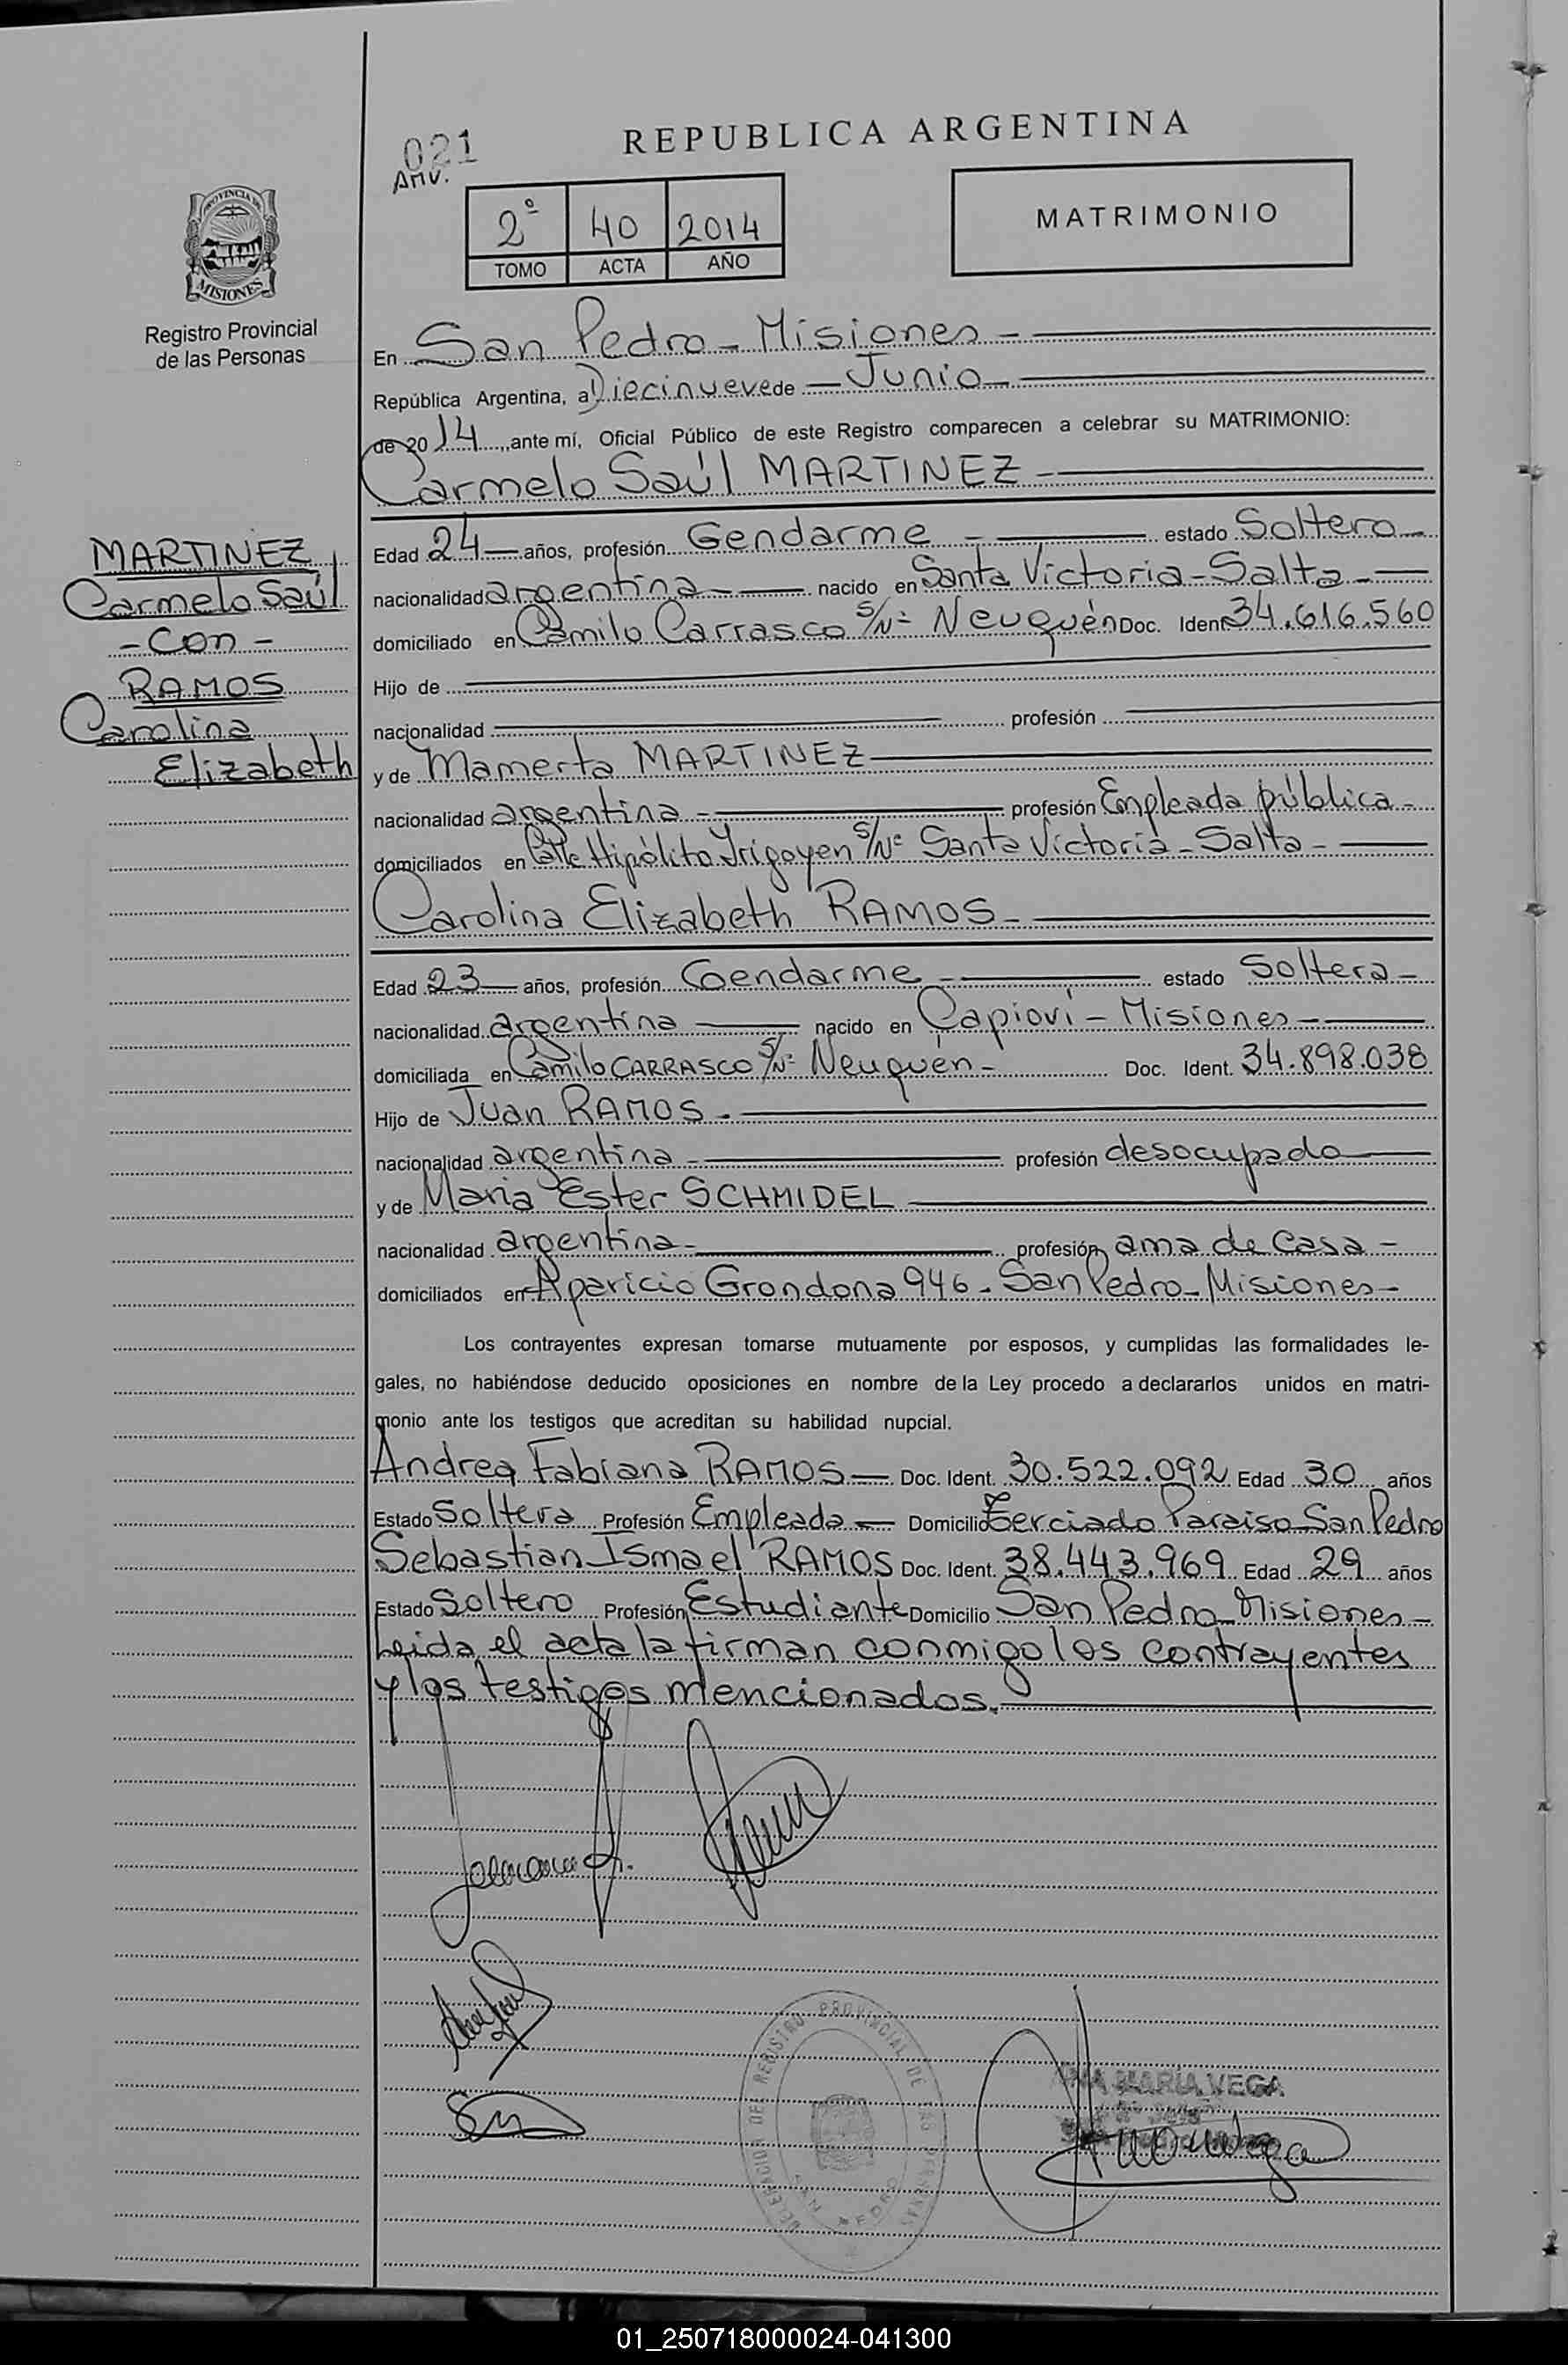 REPUBLICA ARGENTINA
021
Anv.
2º 40 2014
TOMO ACTA AÑO
MATRIMONIO
PROVINCIA DE
MISIONES
Registro Provincial
de las Personas
MARTINEZ
Carmelo Saúl
- Con -
RAMOS
Carolina
Elizabeth
En San Pedro - Misiones -
República Argentina, a Diecinueve de Junio
de 2014, ante mí, Oficial Público de este Registro comparecen a celebrar su MATRIMONIO:
Carmelo Saúl MARTINEZ
Edad 24 años, profesión Gendarme - estado Soltero
nacionalidad argentina - nacido en Santa Victoria - Salta -
domiciliado en Camilo Carrasco S/Nº Neuquén Doc. Ident. 34.616.560
Hijo de
nacionalidad profesión
y de Mamerta MARTINEZ
nacionalidad argentina - profesión Empleada pública -
domiciliados en Calle Hipólito Yrigoyen S/Nº Santa Victoria - Salta -
Carolina Elizabeth RAMOS -
Edad 23 años, profesión Gendarme - estado Soltera -
nacionalidad argentina nacido en Capioví - Misiones -
domiciliada en Camilo CARRASCO S/Nº Neuquén - Doc. Ident. 34.898.038
Hijo de Juan RAMOS -
nacionalidad argentina - profesión desocupado
y de Maria Ester SCHMIDEL
nacionalidad argentina - profesión ama de casa -
domiciliados en Aparicio Grondona 946 - San Pedro - Misiones -
Los contrayentes expresan tomarse mutuamente por esposos, y cumplidas las formalidades le-
gales, no habiéndose deducido oposiciones en nombre de la Ley procedo a declararlos unidos en matri-
monio ante los testigos que acreditan su habilidad nupcial.
Andrea Fabiana RAMOS Doc. Ident. 30.522.092 Edad 30 años
Estado Soltera Profesión Empleada Domicilio Terciado Paraiso San Pedro
Sebastian Ismael RAMOS Doc. Ident. 38.443.969 Edad 29 años
Estado Soltero Profesión Estudiante Domicilio San Pedro - Misiones -
Leida el acta la firman conmigo los contrayentes
y los testigos mencionados.
DELEGACION DEL REGISTRO PROVINCIAL DE LAS PERSONAS
SAN PEDRO
ANA MARÍA VEGA
01_250718000024-041300